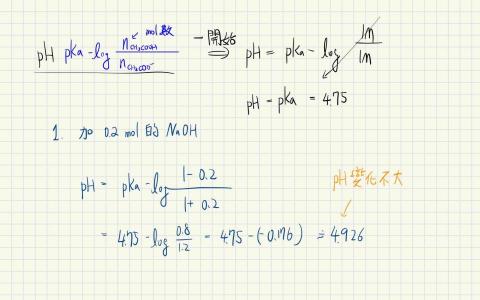 pH pKa - log n CH₃COOH / n CH₃COO⁻ mol數 一開始 ⇒ pH = pKa - log 1n / 1n
pH = pKa = 4.75
1. 加 0.2 mol 的 NaOH
pH = pKa - log 1 - 0.2 / 1 + 0.2
pH 變化不大
= 4.75 - log 0.8 / 1.2 = 4.75 - (-0.176) ≒ 4.926